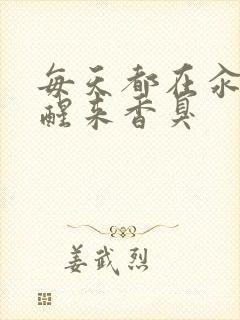 每天都在汆
醒来香臭
姜武烈